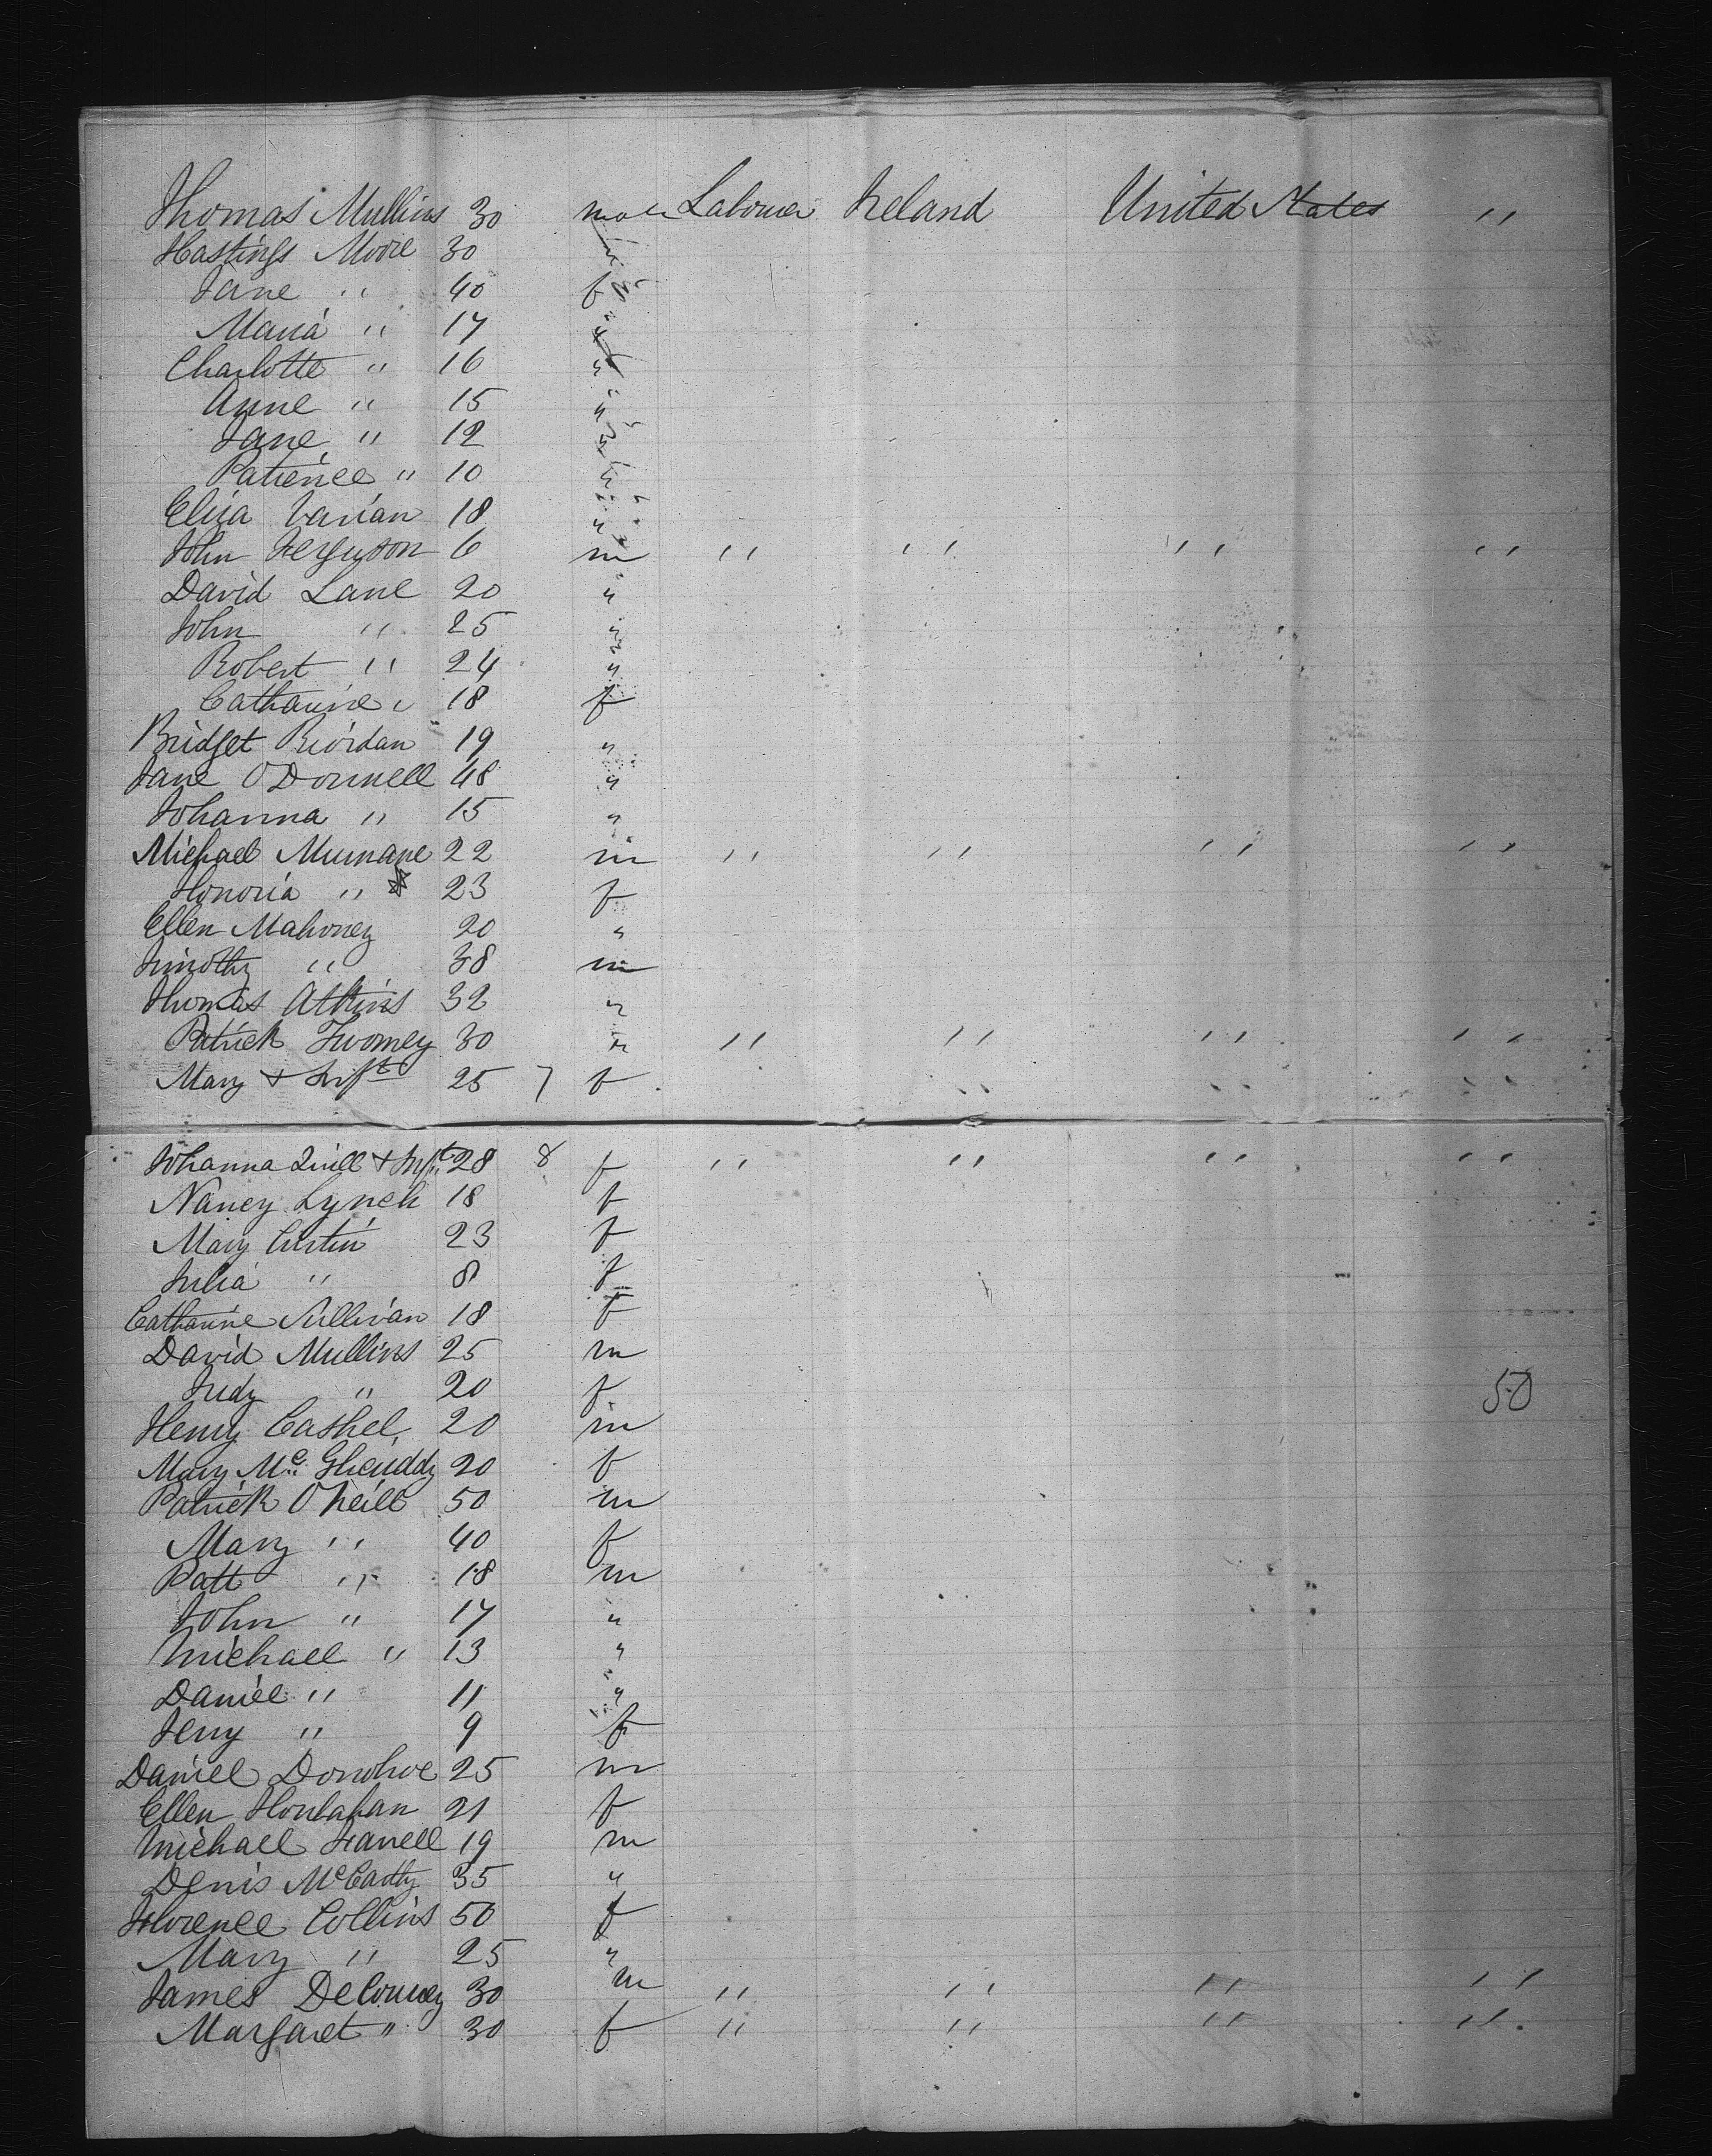 Thomas Mullins 30 male Labourer Ireland United States "
Hastings Moore 30 "
Jane " 40 f
Maria " 17 "
Charlotte " 16 "
Anne " 15 "
Jane " 12 "
Patience " 10 "
Eliza Varian 18 "
John Ferguson 6 m " " " "
David Lane 20 "
John " 25 "
Robert " 24 "
Catharine " 18 f
Bridget Riordan 19 "
Jane O Donnell 48 "
Johanna " 15 "
Michael Murnane 22 m " " " "
Honoria " 23 f
Ellen Mahoney 20 "
Timothy " 38 m
Thomas Atkins 32 "
Patrick Twomey 30 " " " " "
Mary + Inft 25 7 f " " "
Johanna Quill + Inft 28 8 f " " " "
Nancy Lynch 18 f
Mary Curtin 23 f
Julia " 8 f
Catharine Sullivan 18 f
David Mullins 25 m
Judy " 20 f 50
Henry Cashel 20 m
Mary Mc 20 f
Patrick O Neill 50 m
Mary " 40 f
Patt " 18 m
John " 17 "
Michael " 13 "
Daniel " 11 "
Jerry " 9 f
Daniel Donohoe 25 m
Ellen Houlahan 21 f
Michael Farrell 19 m
Denis McCarthy 35 "
Florence Collins 50 f
Mary " 25 "
James DeCourcy 30 m " " " "
Margaret " 30 f " " " "